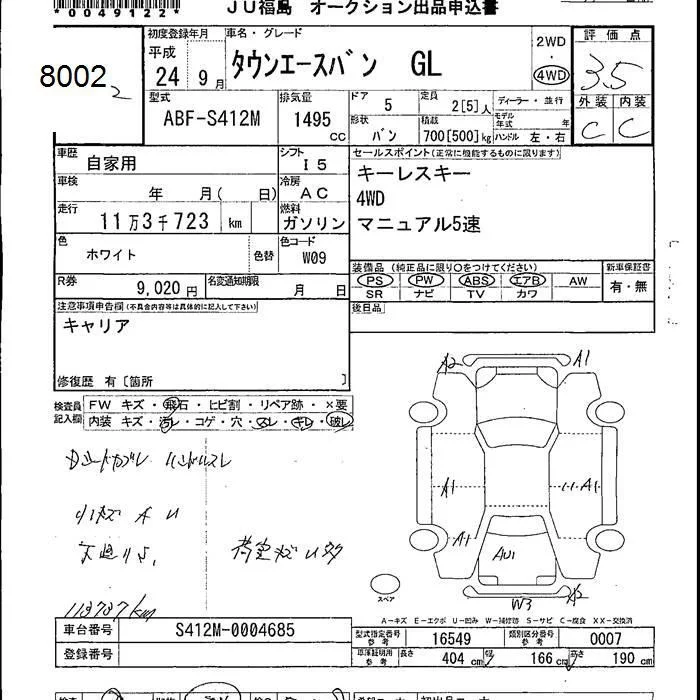 *0049122*
JU福島 オークション出品申込書
8002
2
初度登録年月 車名・グレード 2WD 評価点
平成 24 9月 タウンエースバン GL 4WD 3.5
型式 排気量 ドア 5 定員 2[5]人 ディーラー・並行 外装 内装
ABF-S412M 1495 CC 形状 バン 積載 700[500]kg モデル年式 年 ハンドル 左・右 C C
車歴 自家用 シフト I5 セールスポイント(正常に機能するものに限ります)
車検 年 月( 日) 冷房 AC キーレスキー
4WD
走行 11万3千723 km 燃料 ガソリン マニュアル5速
色 ホワイト 色替 色コード W09
装備品 (純正品に限り○をつけてください) 新車保証書
PS PW ABS エアB AW 有・無
SR ナビ TV カワ
R券 9,020円 名変通知期限 月 日
後日品
注意事項申告欄(不具合内容等は具体的に記入して下さい)
キャリア
修復歴 有〔箇所 〕
検査員記入欄 FW キズ・飛石・ヒビ割・リペア跡・×要
内装 キズ・汚レ・コゲ・穴・スレ・キレ・破レ
ハンドルスレ
113737km
A2 A1
A1 A1
A1
AU1
W3 X2
スペア
A-キズ E-エクボ U-凹み W-補修跡 S-サビ C-腐食 XX-交換済
車台番号 S412M-0004685
登録番号
型式指定番号 参考 16549 類別区分番号 参考 0007
車庫証明用 参考 長さ 404 cm 幅 166 cm 高さ 190 cm